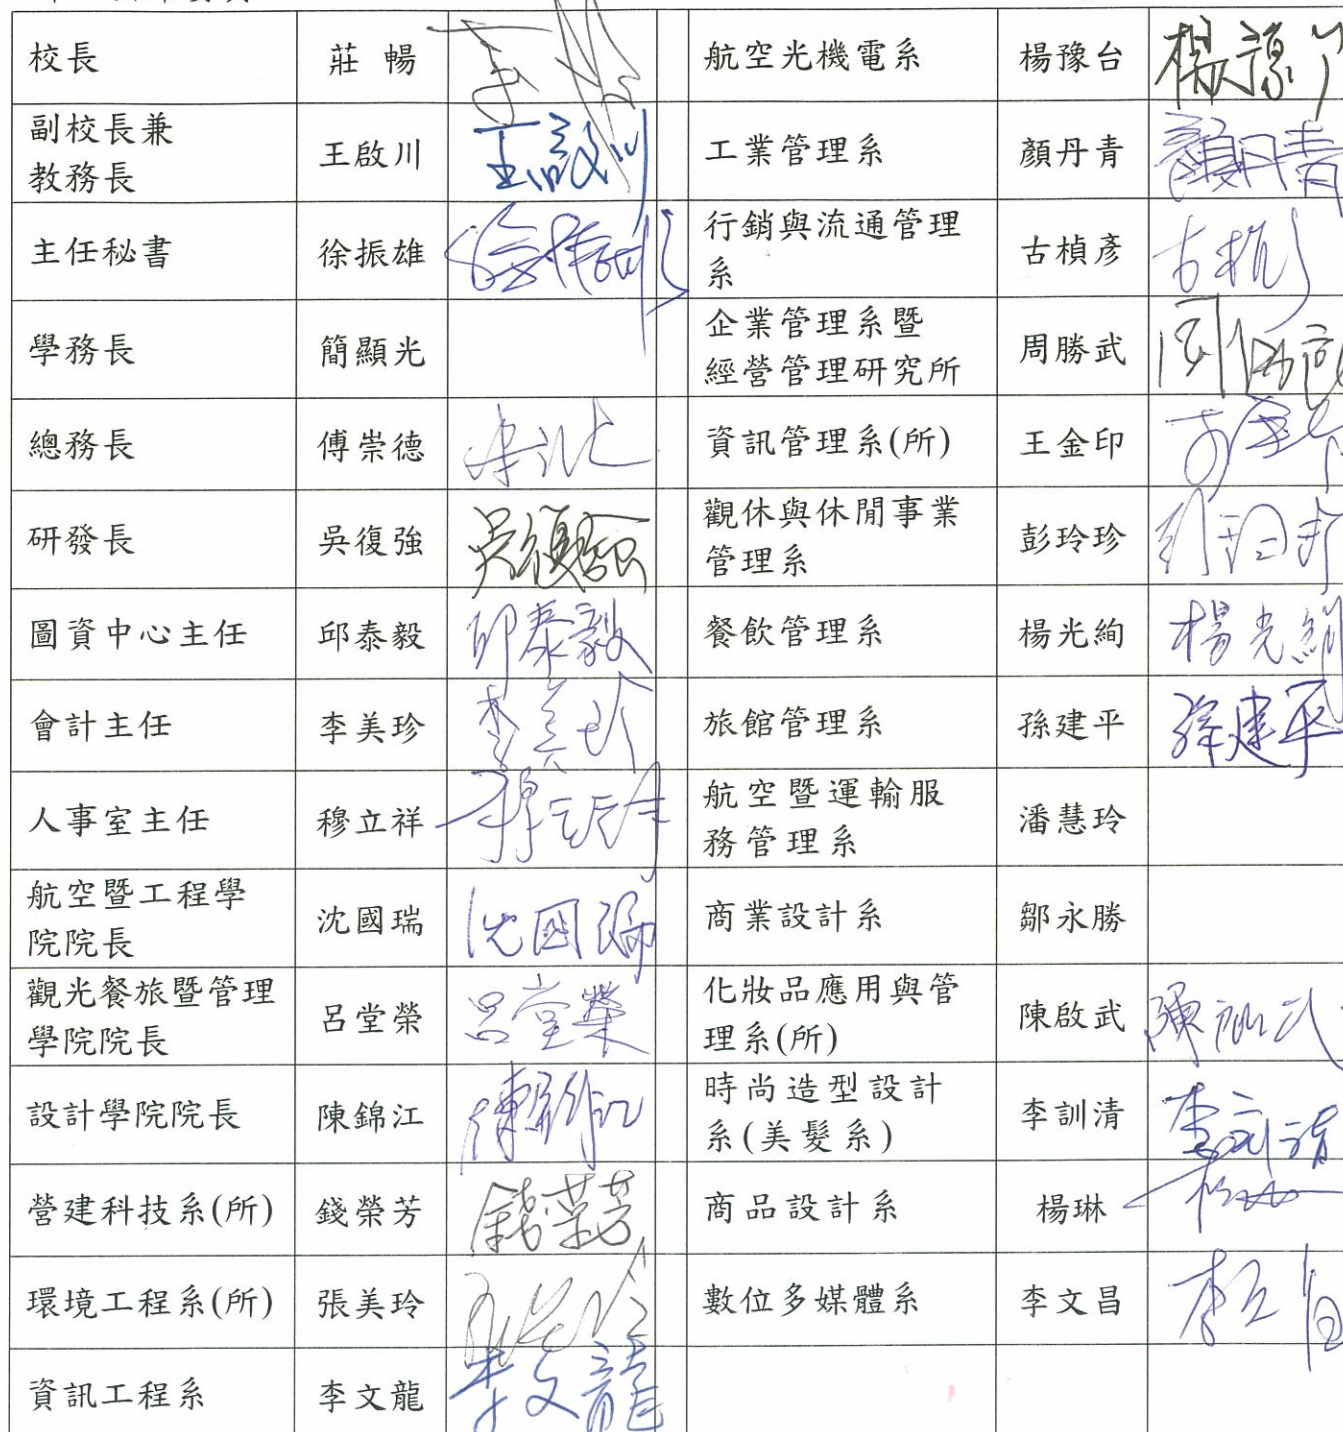 校長 莊暢 航空光機電系 楊豫台 楊豫
副校長兼
教務長 王啟川 王啟川 工業管理系 顏丹青 顏丹青
主任秘書 徐振雄 徐振雄 行銷與流通管理
系 古楨彥
學務長 簡顯光 企業管理系暨
經營管理研究所 周勝武
總務長 傅崇德 資訊管理系(所) 王金印
研發長 吳復強 吳復強 觀休與休閒事業
管理系 彭玲珍
圖資中心主任 邱泰毅 邱泰毅 餐飲管理系 楊光絢 楊光絢
會計主任 李美珍 李美珍 旅館管理系 孫建平 孫建平
人事室主任 穆立祥 航空暨運輸服
務管理系 潘慧玲
航空暨工程學
院院長 沈國瑞 沈國瑞 商業設計系 鄒永勝
觀光餐旅暨管理
學院院長 呂堂榮 呂堂榮 化妝品應用與管
理系(所) 陳啟武 陳啟武
設計學院院長 陳錦江 陳錦江 時尚造型設計
系(美髮系) 李訓清 李訓清
營建科技系(所) 錢榮芳 錢榮芳 商品設計系 楊琳
環境工程系(所) 張美玲 數位多媒體系 李文昌 李文昌
資訊工程系 李文龍 李文龍